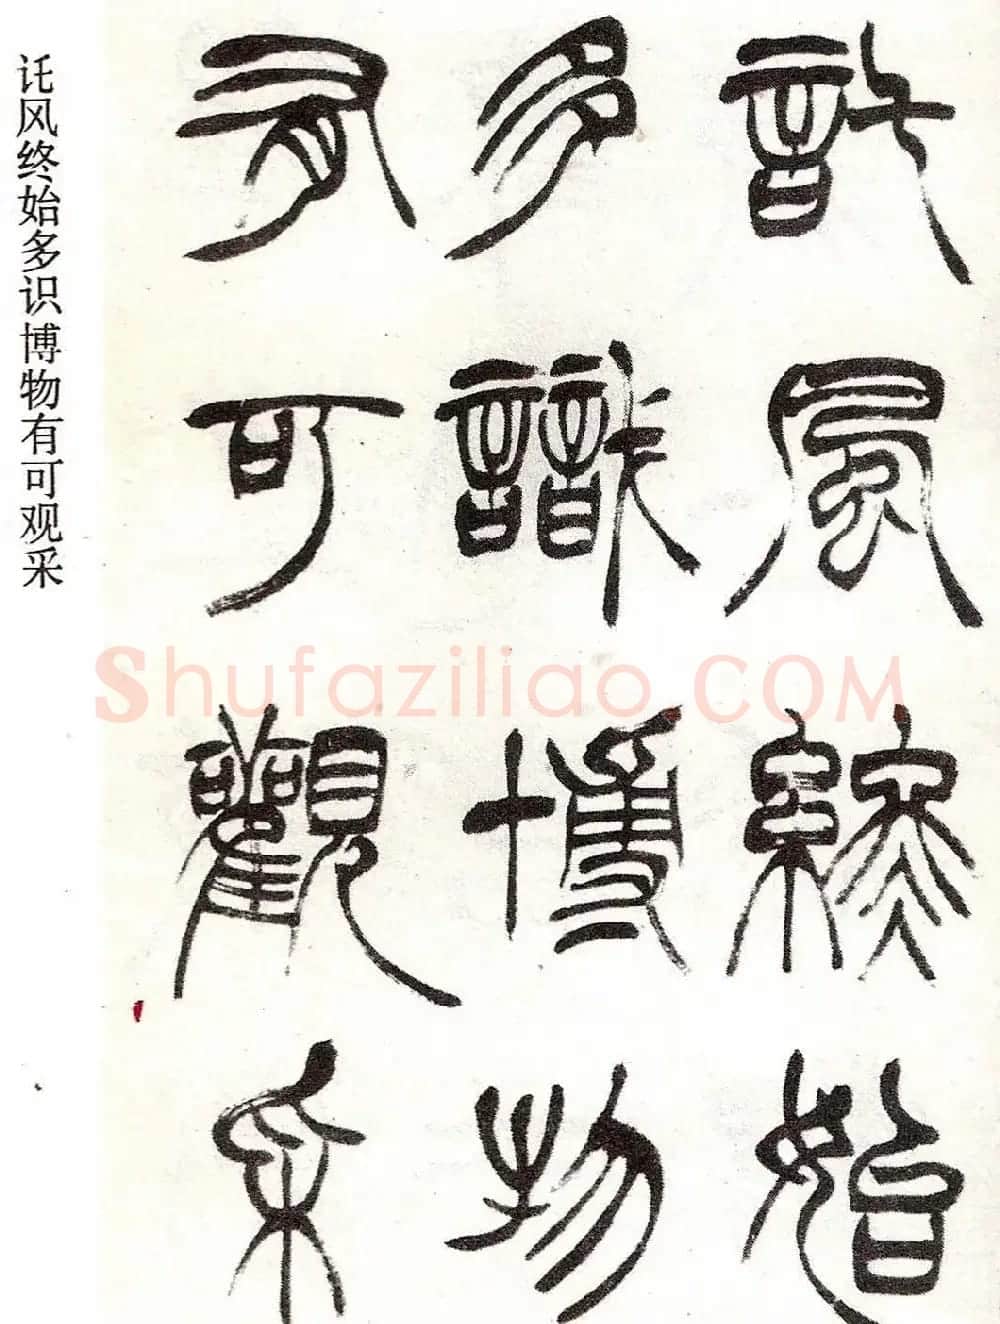 託風終始
多識博物
有可觀采
讬风终始多识博物有可观采
Shufaziliao.COM